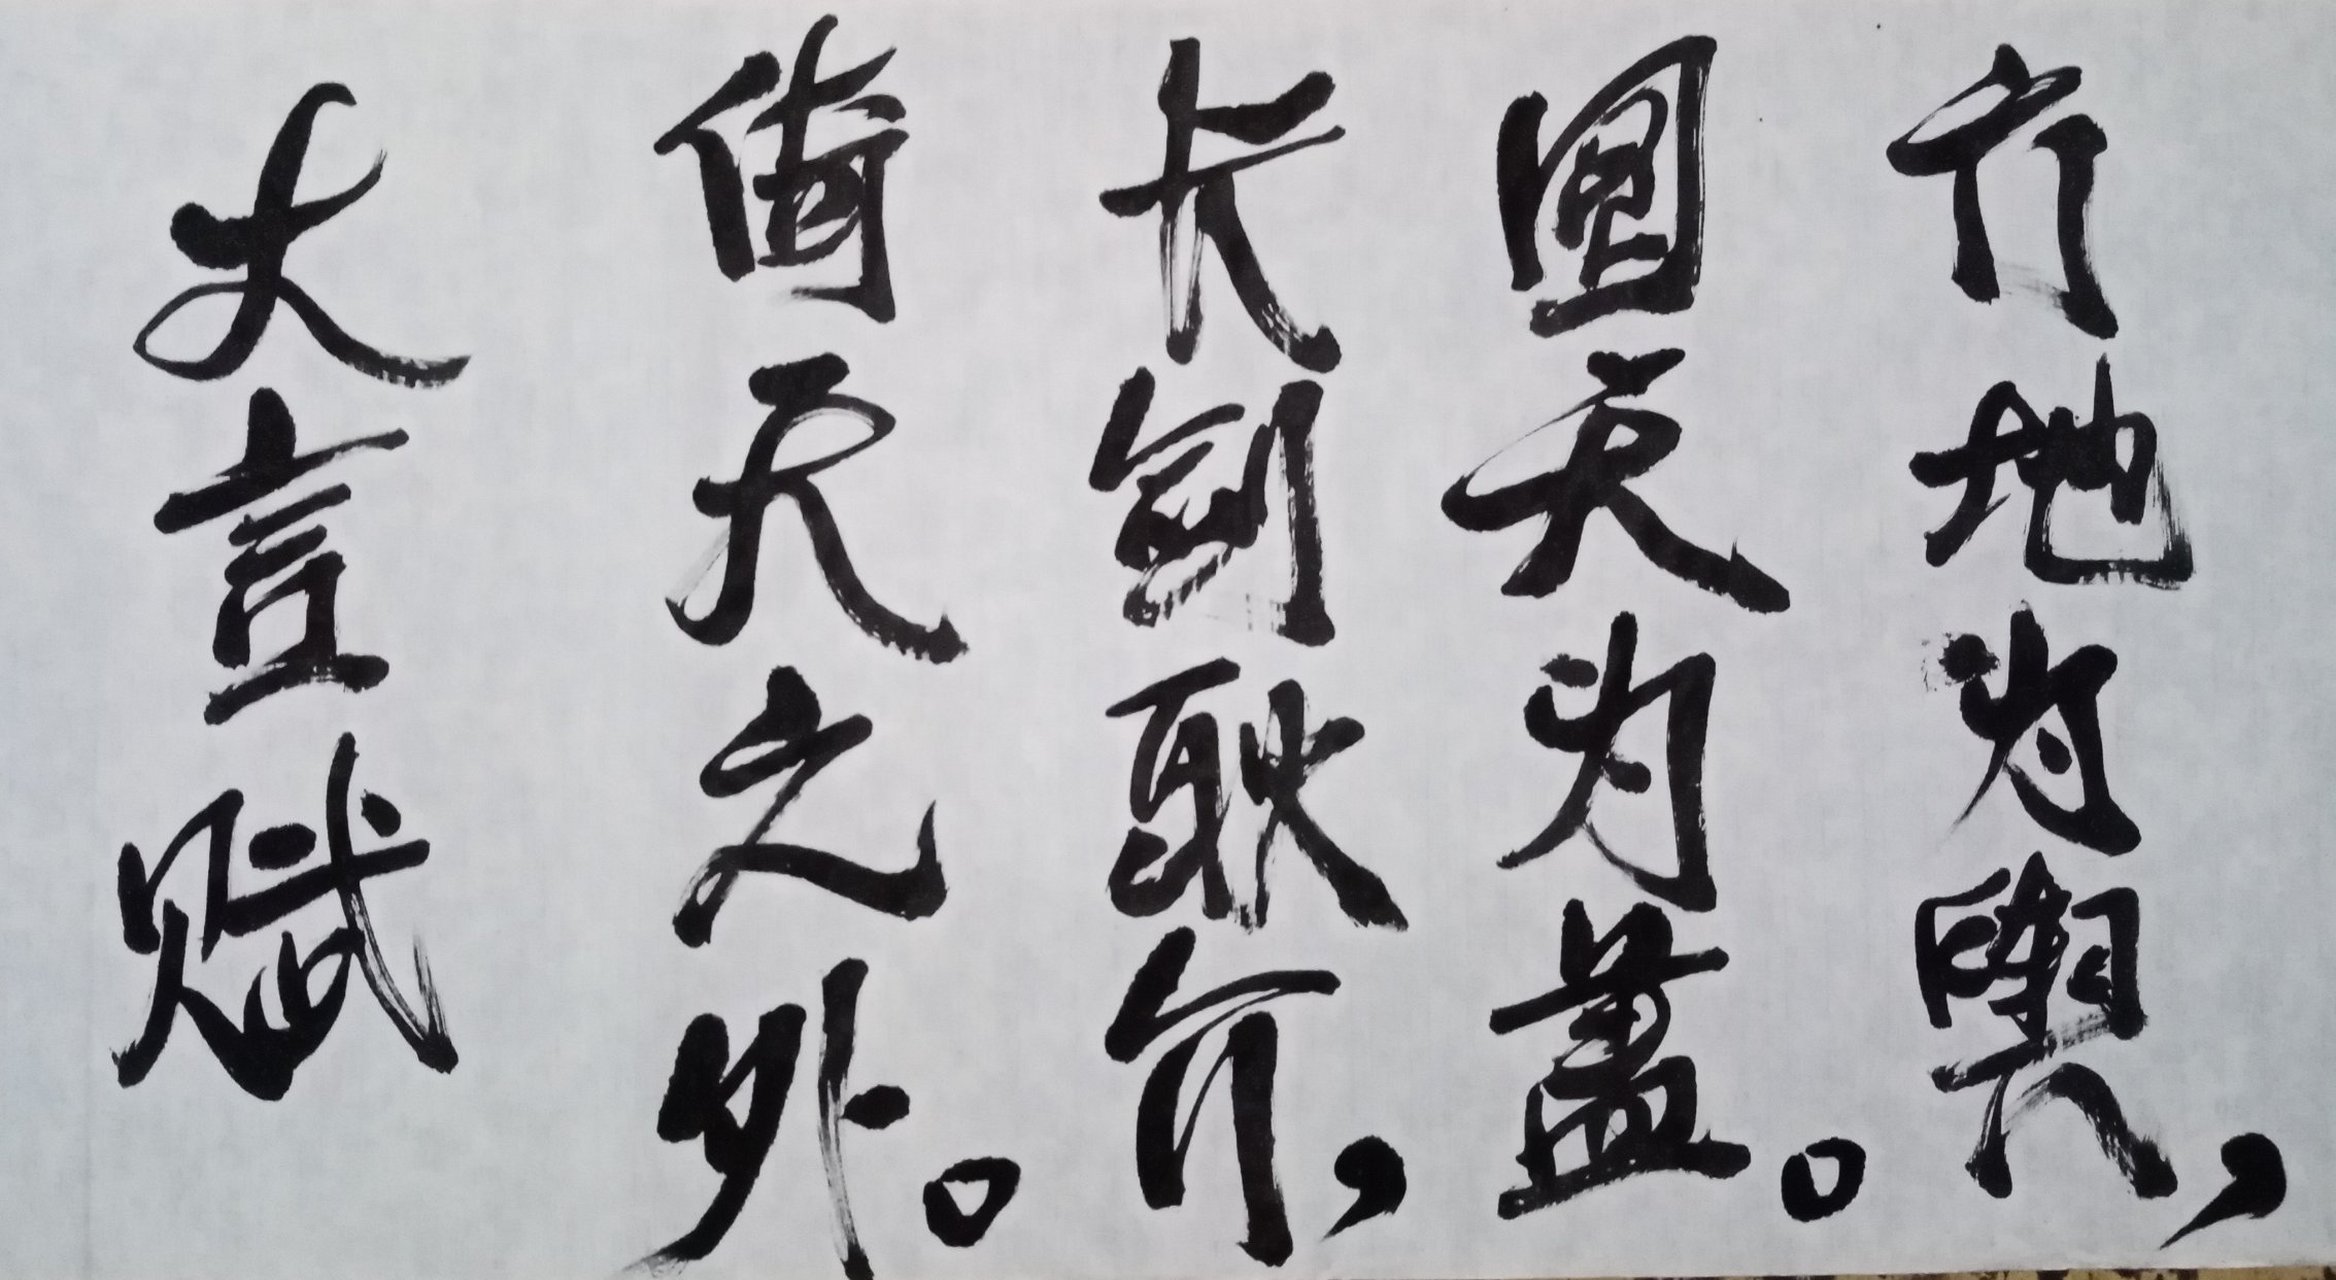 方地为舆，
圆天为盖。
长剑耿介，
倚天之外。
大言赋